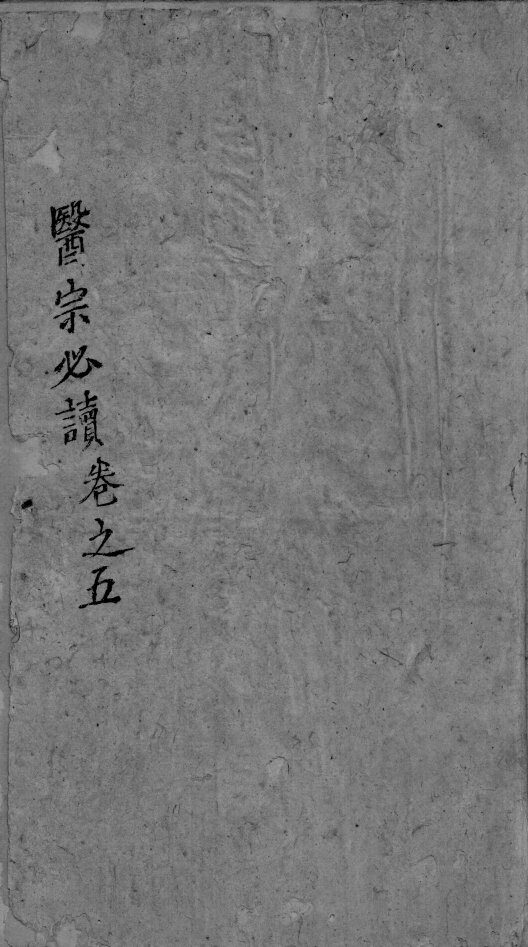 醫宗必讀卷之五